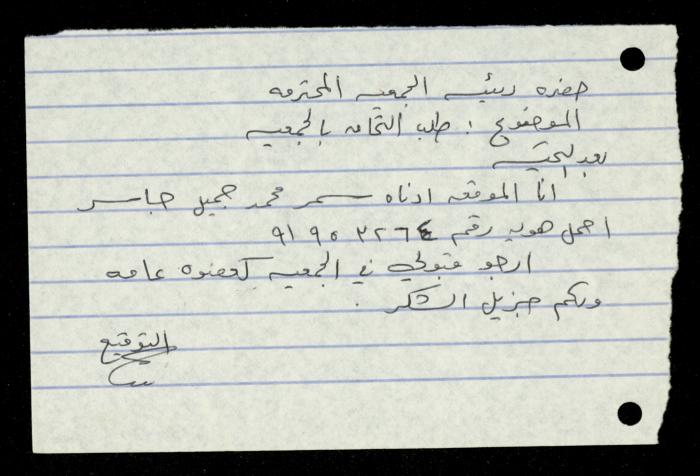 حضرة رئيسة الجمعية المحترمة
الموضوع : طلب التحاق بالجمعية
بعد التحية
انا الموقعه ادناه سمر محمد جميل جابر
احمل هوية رقم ٩١٩٥٣٢٦٤
ارجو قبولي في الجمعية كعضوه عامه
ولكم جزيل الشكر .
التوقيع